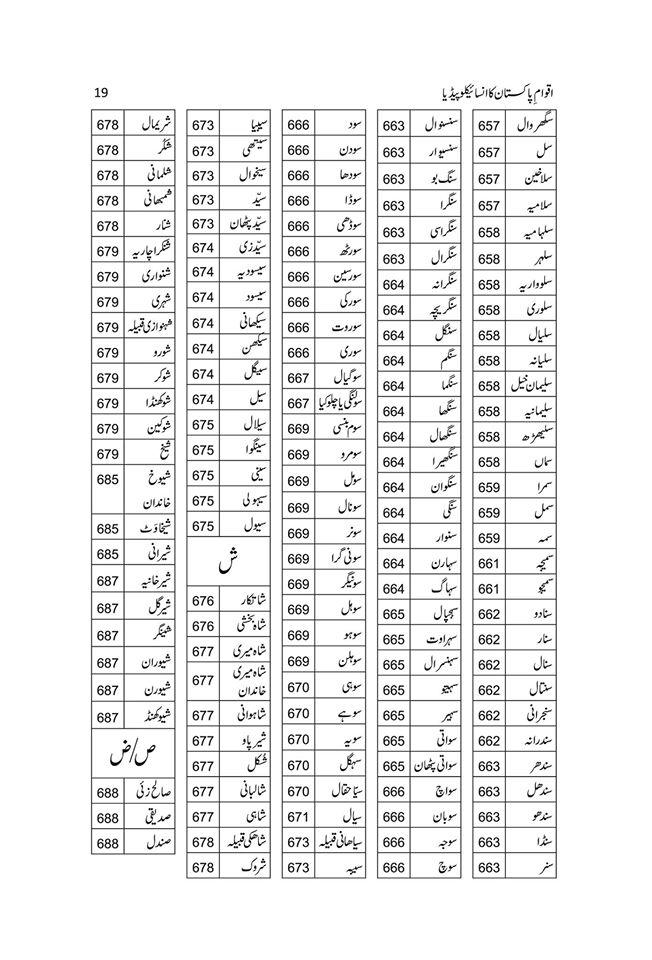 اقوامِ پاکستان کا انسائیکلوپیڈیا 19
سگھروال 657
سل 657
سلاخین 657
سلامیہ 657
سلہامیہ 658
سلہر 658
سلوواریہ 658
سلوری 658
سلیال 658
سلیانہ 658
سلیمان خیل 658
سلیمانیہ 658
سلیھڑھ 658
سماں 658
سمرا 659
سمل 659
سمہ 659
سمیچہ 661
سمیجو 661
سنادو 662
سنار 662
سنال 662
سنتال 662
سنجرانی 662
سندرانہ 662
سندھر 663
سندھل 663
سندھو 663
سنڈا 663
سنر 663
سنسنوال 663
سنسیوار 663
سنگ بو 663
سنگرا 663
سنگراسی 663
سنگرال 663
سنگرانہ 664
سنگریچہ 664
سنگل 664
سنگم 664
سنگما 664
سنگھا 664
سنگھال 664
سنگھیرا 664
سنگوان 664
سنگی 664
سنوار 664
سہارن 664
سہاگ 664
سہجپال 665
سہراوت 665
سہنسرال 665
سہیتو 665
سہیر 665
سواتی 665
سواتی پٹھان 665
سواچ 666
سوبان 666
سوجہ 666
سوچ 666
سود 666
سودن 666
سودھا 666
سوڈا 666
سوڈھی 666
سورٹھ 666
سورسین 666
سورکی 666
سوروت 666
سوری 666
سوگیال 667
سولنگی یا چلوکیا 667
سوم بنسی 669
سومرو 669
سومل 669
سونال 669
سونر 669
سونی گرا 669
سونیگر 669
سوہل 669
سوہو 669
سوہلن 669
سوہی 670
سوہے 670
سویہ 670
سہگل 670
سیاحقال 670
سیال 671
سیاھانی قبیلہ 673
سیبہ 673
سیپیا 673
سیتھی 673
سیخوال 673
سیّد 673
سیّد پٹھان 673
سیّدزی 674
سیسودیہ 674
سیسود 674
سیکھانی 674
سیکھن 674
سیگل 674
سیل 674
سیلال 675
سینگوا 675
سینی 675
سیہولی 675
سیول 675
ش
شاتکار 676
شاہ بخشی 676
شاہ میری 677
شاہ میری
خاندان 677
شاہوانی 677
شیر پاو 677
شکل 677
شالبانی 677
شاہی 677
شاھکی قبیلہ 678
شروک 678
شریمال 678
شکر 678
شلمانی 678
شمبھانی 678
شنار 678
شنکراچاریہ 679
شنواری 679
شہری 679
شہنوازی قبیلہ 679
شورو 679
شوکر 679
شوکھنڈا 679
شوکین 679
شیخ 679
شیوخ
خاندان 685
شیخاؤٹ 685
شیرانی 685
شیرخانیہ 687
شیرگل 687
شینگر 687
شیوران 687
شیورن 687
شیوکھنڈ 687
ص/ض
صالح زئی 688
صدیقی 688
صندل 688